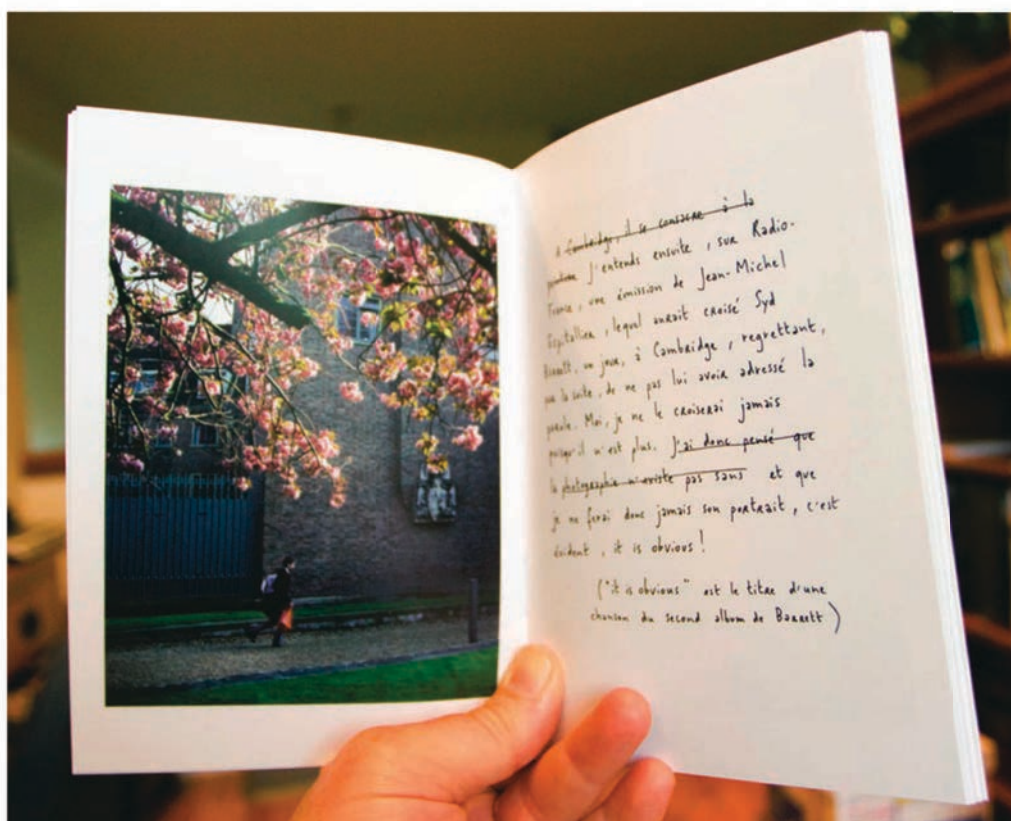 A Cambridge, il se consacre à la
peinture J'entends ensuite, sur Radio-
France, une émission de Jean-Michel
Espitallier, lequel aurait croisé Syd
Barrett, un jour, à Cambridge, regrettant,
par la suite, de ne pas lui avoir adressé la
parole. Moi, je ne le croiserai jamais
puisqu'il n'est plus. J'ai donc pensé que
la photographie n'existe pas sans et que
je ne ferai donc jamais son portrait, c'est
évident, it is obvious !
("it is obvious" est le titre d'une
chanson du second album de Barrett)